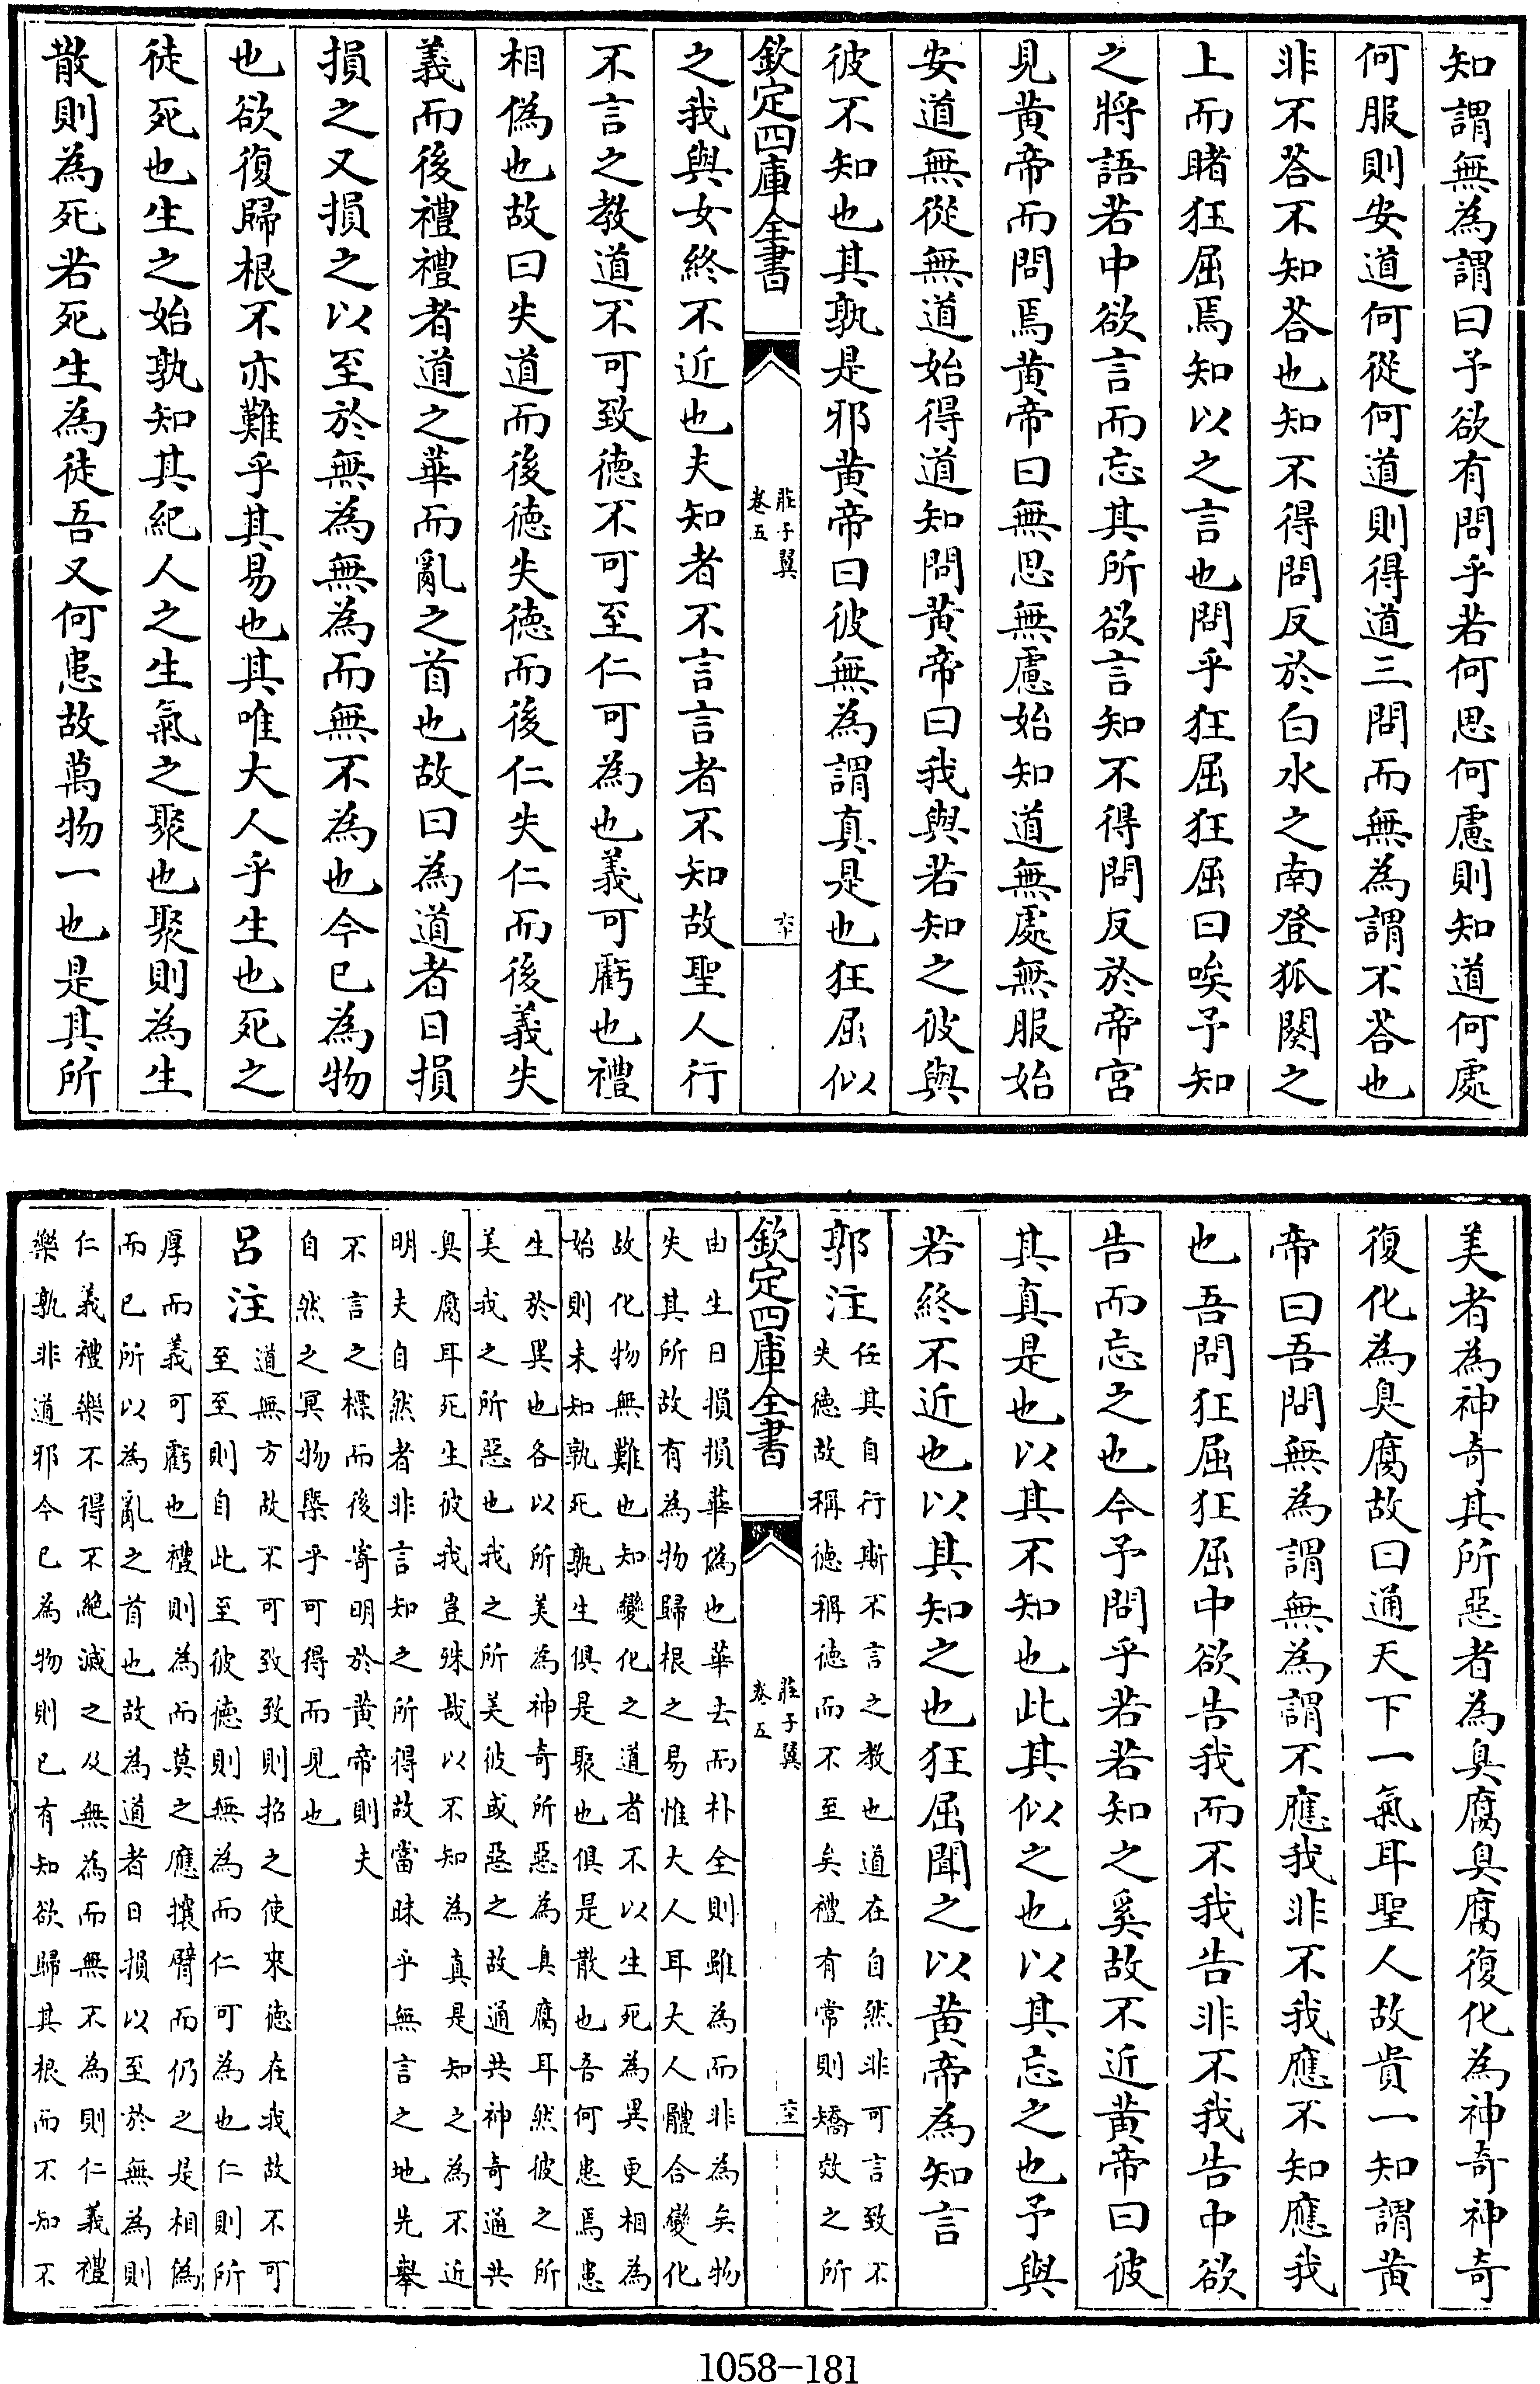 知謂無為謂曰予欲有問乎若何思何慮則知道何處
何服則安道何從何道則得道三問而無為謂不荅也
非不荅不知荅也知不得問反於白水之南登狐闋之
上而睹狂屈焉知以之言也問乎狂屈狂屈曰唉予知
之將語若中欲言而忘其所欲言知不得問反於帝宮
見黄帝而問焉黄帝曰無思無慮始知道無處無服始
安道無從無道始得道知問黄帝曰我與若知之彼與
彼不知也其孰是邪黄帝曰彼無為謂真是也狂屈似
欽定四庫全書
莊子翼
卷五
六十
之我與女終不近也夫知者不言言者不知故聖人行
不言之教道不可致德不可至仁可為也義可虧也禮
相偽也故曰失道而後徳失徳而後仁失仁而後義失
義而後禮禮者道之華而亂之首也故曰為道者日損
損之又損之以至於無為無為而無不為也今已為物
也欲復歸根不亦難乎其易也其唯大人乎生也死之
徒死也生之始孰知其紀人之生氣之聚也聚則為生
散則為死若死生為徒吾又何患故萬物一也是其所
美者為神奇其所惡者為臭腐臭腐復化為神奇神奇
復化為臭腐故曰通天下一氣耳聖人故貴一知謂黄
帝曰吾問無為謂無為謂不應我非不我應不知應我
也吾問狂屈狂屈中欲告我而不我告非不我告中欲
告而忘之也今予問乎若若知之奚故不近黄帝曰彼
其真是也以其不知也此其似之也以其忘之也予與
若終不近也以其知之也狂屈聞之以黄帝為知言
郭注
任其自行斯不言之教也道在自然非可言致不
失徳故稱徳稱徳而不至矣禮有常則矯效之所
欽定四庫全書
莊子翼
卷五
六十一
由生日損損華偽也華去而朴全則雖為而非為矣物
失其所故有為物歸根之易惟大人耳大人體合變化
故化物無難也知變化之道者不以生死為異更相為
始則未知孰死孰生俱是聚也俱是散也吾何患焉患
生於異也各以所美為神奇所惡為臭腐耳然彼之所
美我之所惡也我之所美彼或惡之故通共神奇通共
臭腐耳死生彼我豈殊哉以不知為真是知之為不近
明夫自然者非言知之所得故當昧乎無言之地先舉
不言之標而後寄明於黄帝則夫
自然之冥物槩乎可得而見也
吕注
道無方故不可致致則招之使來徳在我故不可
至至則自此至彼德則無為而仁可為也仁則所
厚而義可虧也禮則為而莫之應攘臂而仍之是相偽
而已所以為亂之首也故為道者日損以至於無為則
仁義禮樂不得不絶滅之及無為而無不為則仁義禮
樂孰非道邪今已為物則已有知欲歸其根而不知不
1058-181